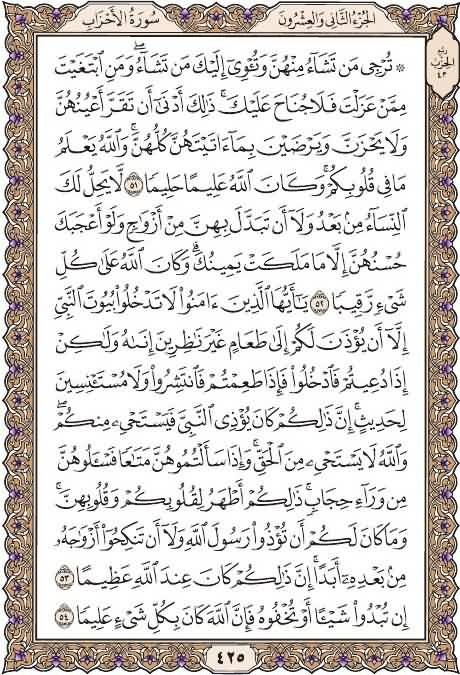 سُورَةُ الأَحْزَابِ
الجُزْءُ الثَّانِي وَالعِشْرُونَ
ربع
الحزب
٤٣
۞ تُرْجِى مَن تَشَآءُ مِنْهُنَّ وَتُـْٔوِىٓ إِلَيْكَ مَن تَشَآءُ ۖ وَمَنِ ٱبْتَغَيْتَ
مِمَّنْ عَزَلْتَ فَلَا جُنَاحَ عَلَيْكَ ۚ ذَٰلِكَ أَدْنَىٰٓ أَن تَقَرَّ أَعْيُنُهُنَّ
وَلَا يَحْزَنَّ وَيَرْضَيْنَ بِمَآ ءَاتَيْتَهُنَّ كُلُّهُنَّ ۚ وَٱللَّهُ يَعْلَمُ
مَا فِى قُلُوبِكُمْ ۚ وَكَانَ ٱللَّهُ عَلِيمًا حَلِيمًا ٥١ لَّا يَحِلُّ لَكَ
ٱلنِّسَآءُ مِنۢ بَعْدُ وَلَآ أَن تَبَدَّلَ بِهِنَّ مِنْ أَزْوَٰجٍ وَلَوْ أَعْجَبَكَ
حُسْنُهُنَّ إِلَّا مَا مَلَكَتْ يَمِينُكَ ۗ وَكَانَ ٱللَّهُ عَلَىٰ كُلِّ
شَىْءٍ رَّقِيبًا ٥٢ يَـٰٓأَيُّهَا ٱلَّذِينَ ءَامَنُوا۟ لَا تَدْخُلُوا۟ بُيُوتَ ٱلنَّبِىِّ
إِلَّآ أَن يُؤْذَنَ لَكُمْ إِلَىٰ طَعَامٍ غَيْرَ نَـٰظِرِينَ إِنَىٰهُ وَلَـٰكِنْ
إِذَا دُعِيتُمْ فَٱدْخُلُوا۟ فَإِذَا طَعِمْتُمْ فَٱنتَشِرُوا۟ وَلَا مُسْتَـْٔنِسِينَ
لِحَدِيثٍ ۚ إِنَّ ذَٰلِكُمْ كَانَ يُؤْذِى ٱلنَّبِىَّ فَيَسْتَحْىِۦ مِنكُمْ ۖ
وَٱللَّهُ لَا يَسْتَحْىِۦ مِنَ ٱلْحَقِّ ۚ وَإِذَا سَأَلْتُمُوهُنَّ مَتَـٰعًا فَسْـَٔلُوهُنَّ
مِن وَرَآءِ حِجَابٍ ۚ ذَٰلِكُمْ أَطْهَرُ لِقُلُوبِكُمْ وَقُلُوبِهِنَّ ۚ
وَمَا كَانَ لَكُمْ أَن تُؤْذُوا۟ رَسُولَ ٱللَّهِ وَلَآ أَن تَنكِحُوٓا۟ أَزْوَٰجَهُۥ
مِنۢ بَعْدِهِۦٓ أَبَدًا ۚ إِنَّ ذَٰلِكُمْ كَانَ عِندَ ٱللَّهِ عَظِيمًا ٥٣
إِن تُبْدُوا۟ شَيْـًٔا أَوْ تُخْفُوهُ فَإِنَّ ٱللَّهَ كَانَ بِكُلِّ شَىْءٍ عَلِيمًا ٥٤
٤٢٥